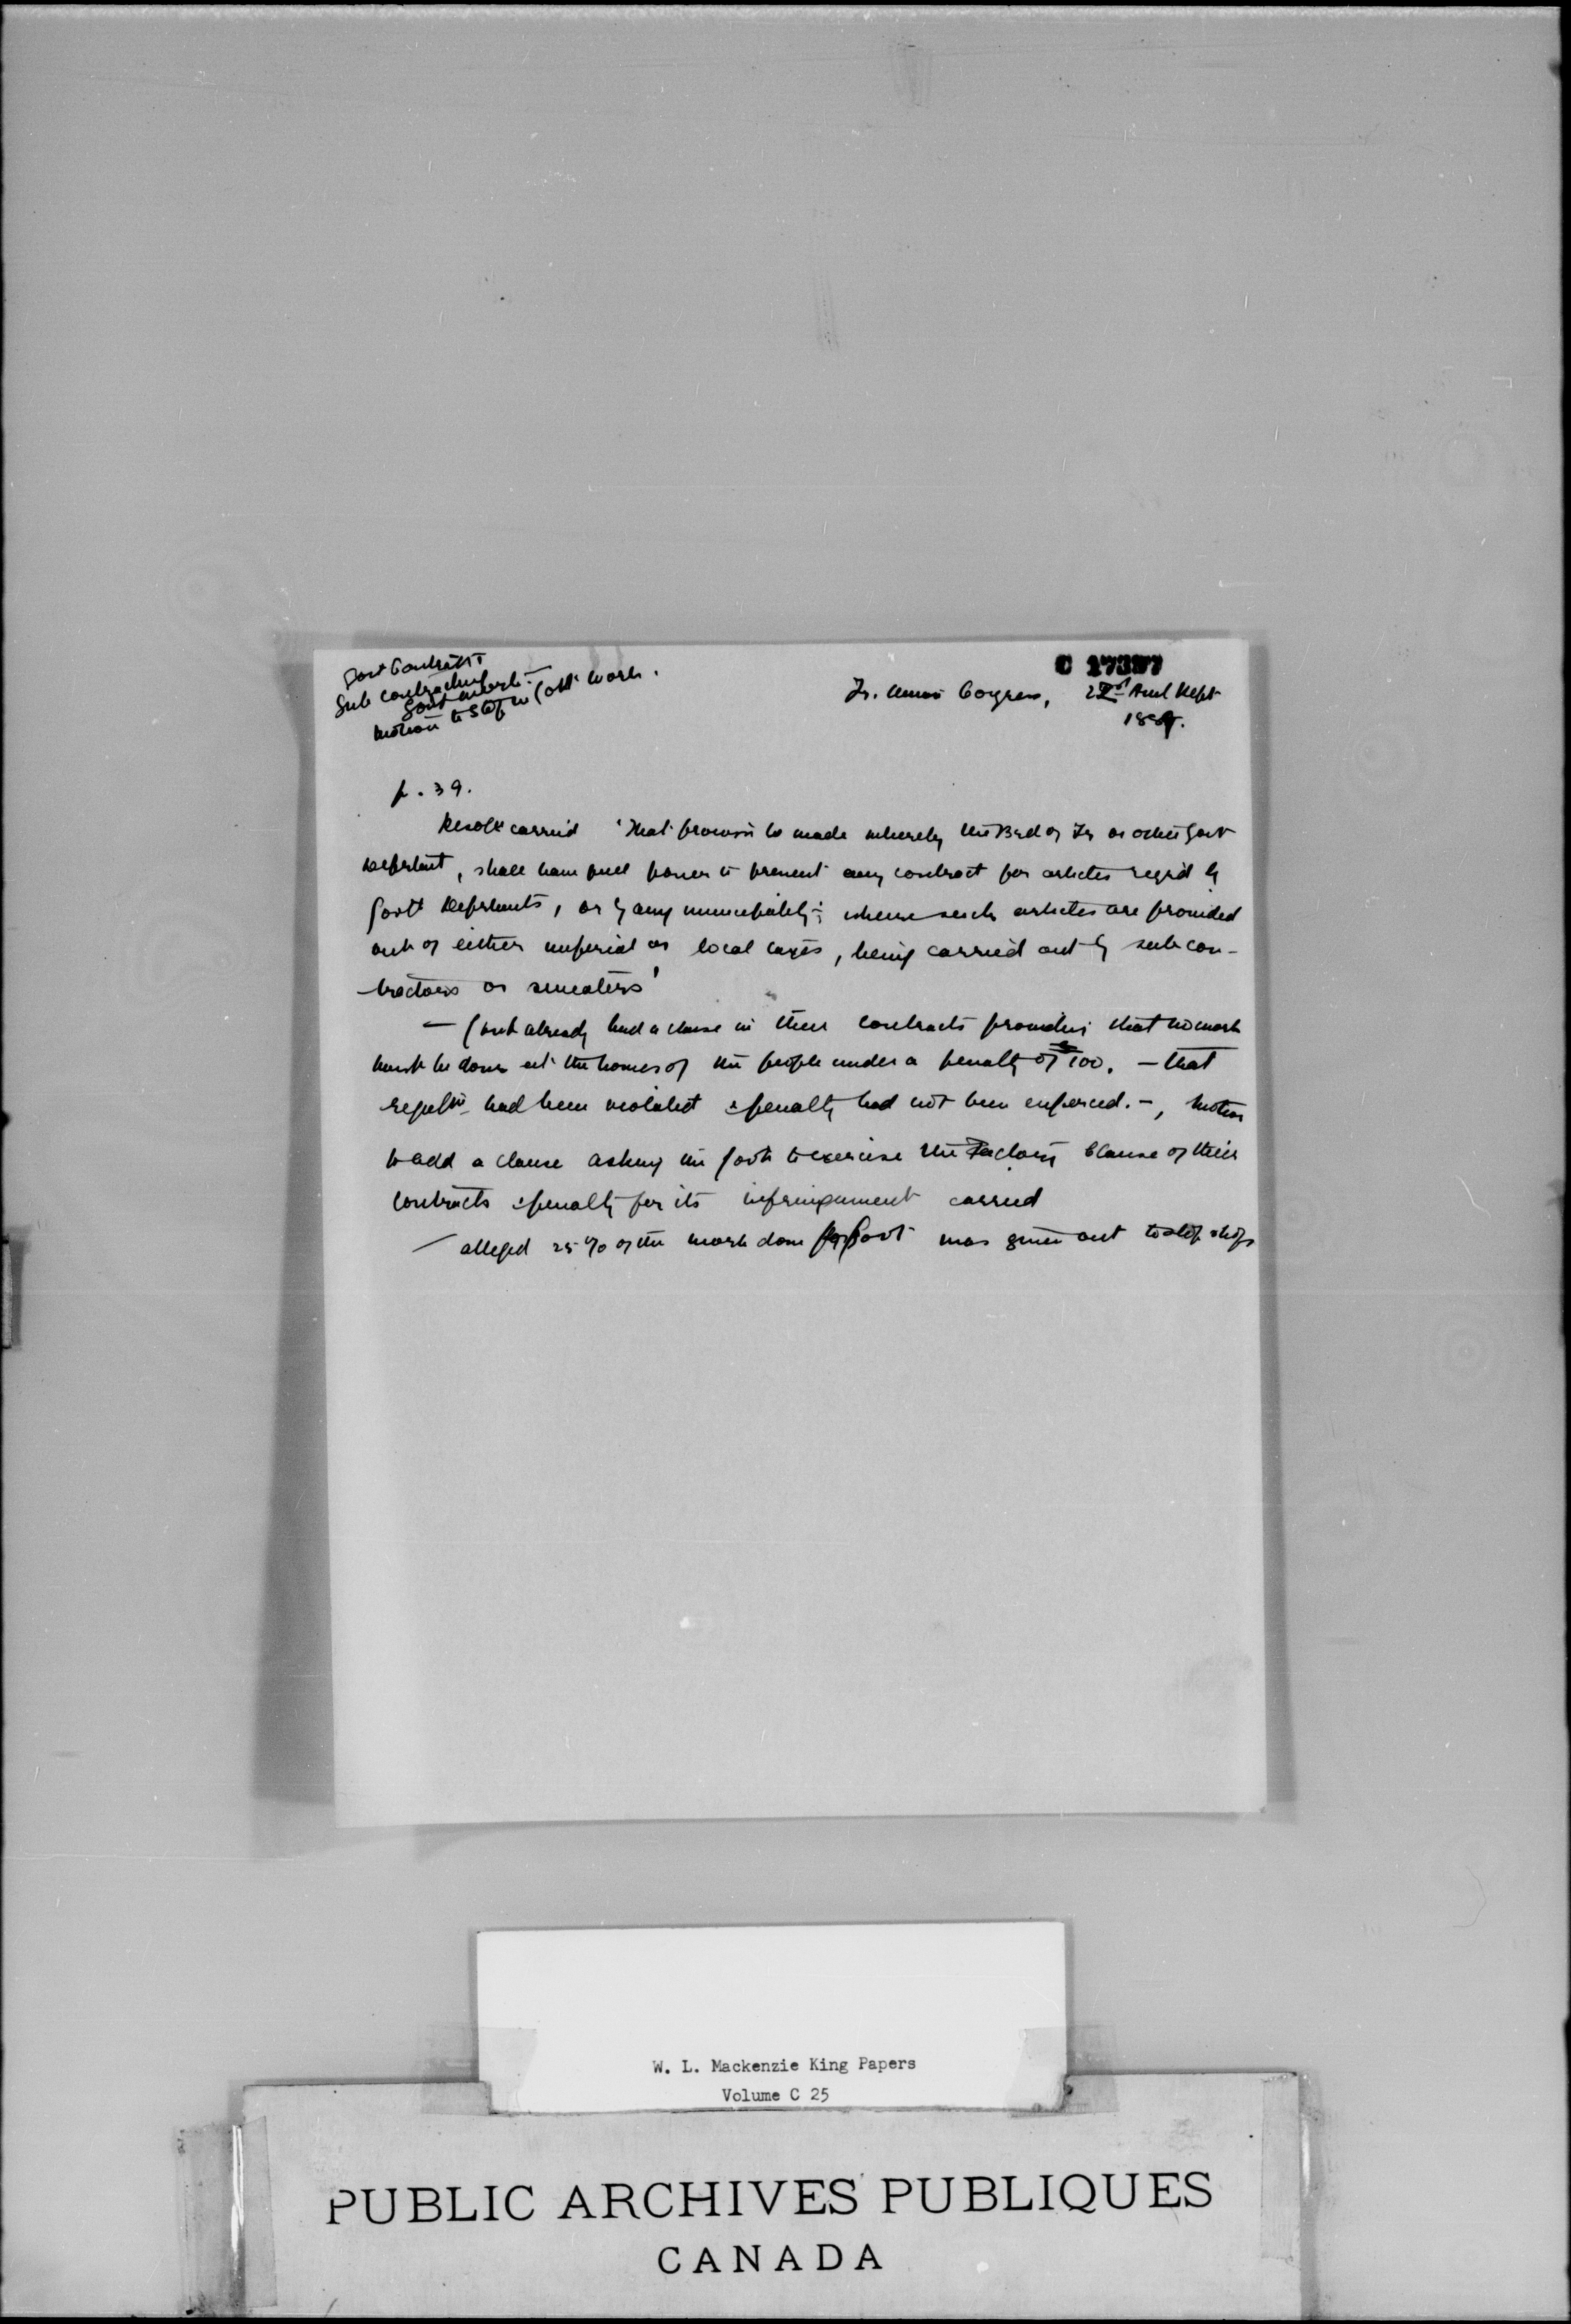 Govt Contracts
Sub contracting
Govt work.
Motion to Stop in Govt Work.
C 17397
Tr. Union Congress, 22nd Anl Rept
1889.
p. 39.
Resoltn carried 'That provisn be made whereby the Brd of Tr or other Govt
Deptmt, shall have full power to prevent any contract for articles reqrd by
Govt Deptmts, or by any municipality; where such articles are provided
out of either imperial or local taxes, being carried out by subcon-
tractors or sweaters'
— Govt already had a clause in their contracts providing that no work
must be done at the homes of the people under a penalty of £100. — that
regultn had been violated & penalty had not been enforced. —, Motion
to add a clause asking the Govt to exercise the Factory Clause of their
Contracts & penalty for its infringement carried
— alleged 25% of the work done for Govt was given out to slop shops
W. L. Mackenzie King Papers
Volume C 25
PUBLIC ARCHIVES PUBLIQUES
CANADA